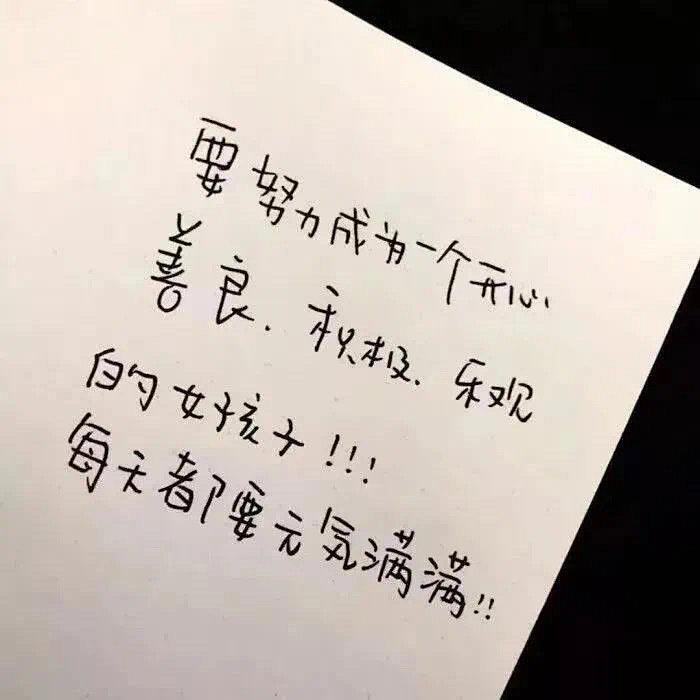 要努力成为一个开心
善良、积极、乐观
的女孩子!!!
每天都要元気满满!!